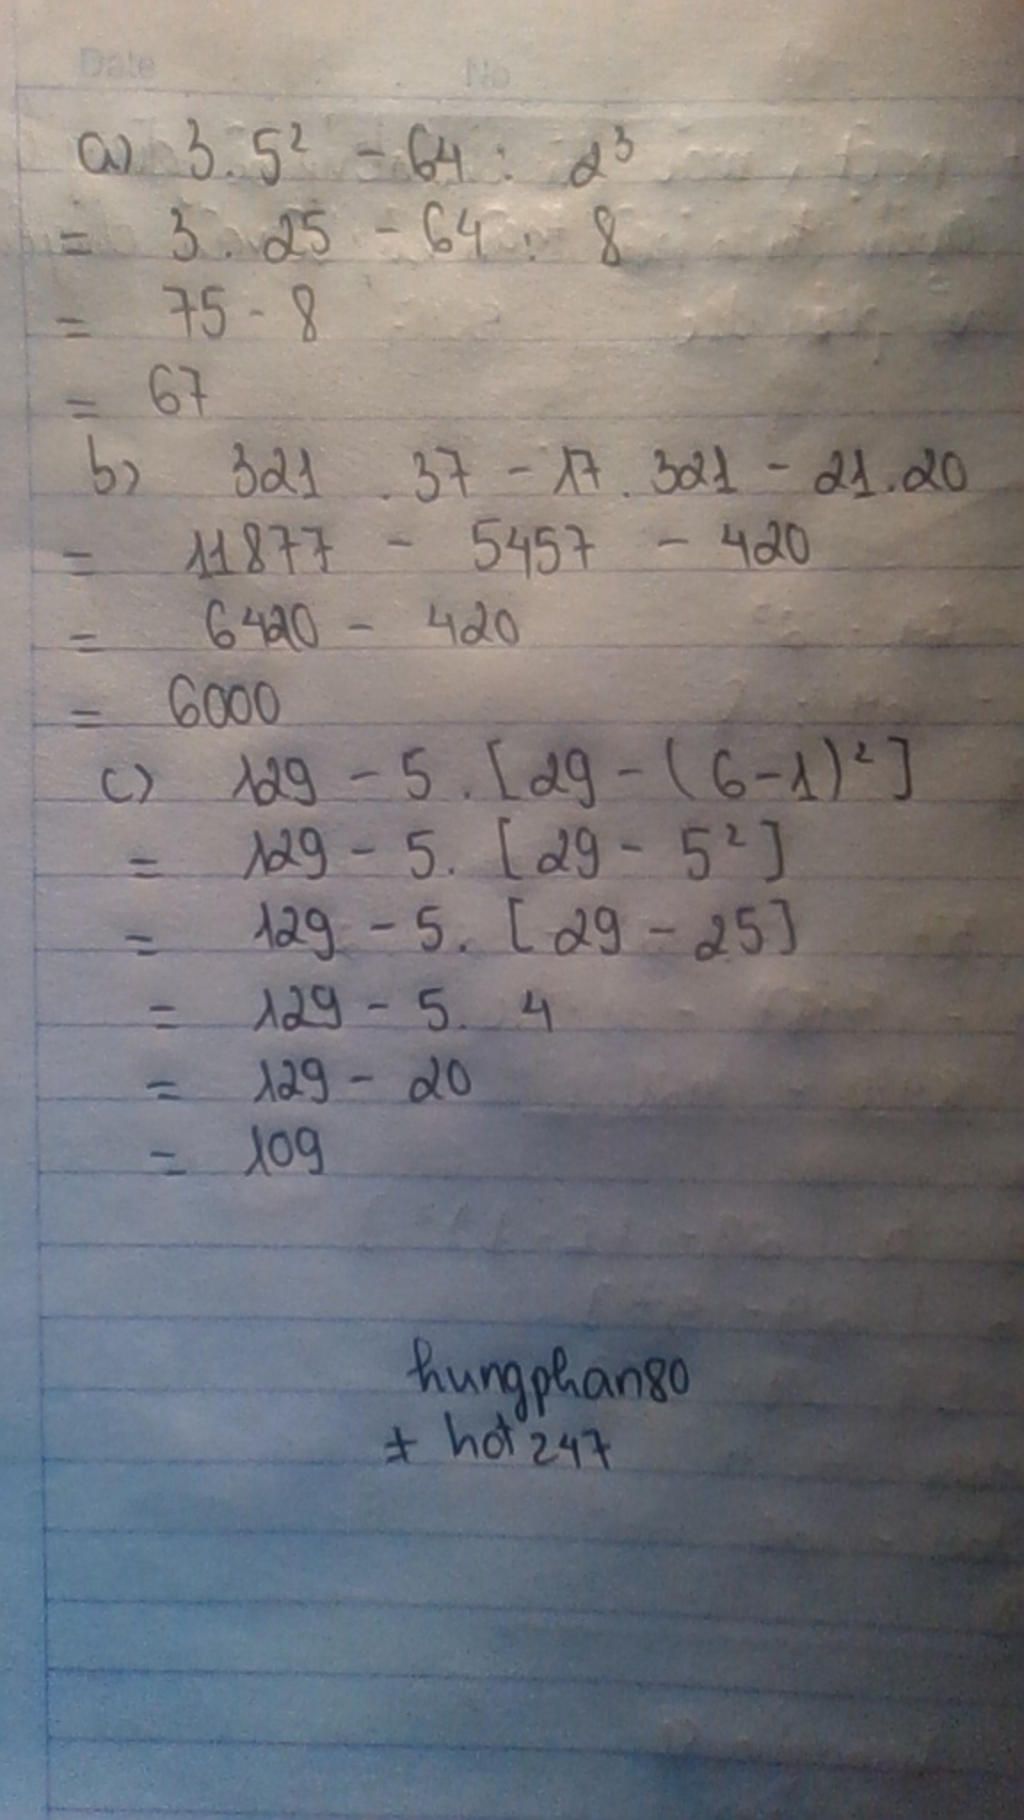 Date No
a) 3.5² - 64 : 2³
= 3 . 25 - 64 : 8
= 75 - 8
= 67
b) 321 . 37 - 17 . 321 - 21.20
= 11877 - 5457 - 420
= 6420 - 420
= 6000
c) 129 - 5 . [29 - (6-1)²]
= 129 - 5. [29 - 5²]
= 129 - 5. [29 - 25]
= 129 - 5. 4
= 129 - 20
= 109
hungphan80
± hot247